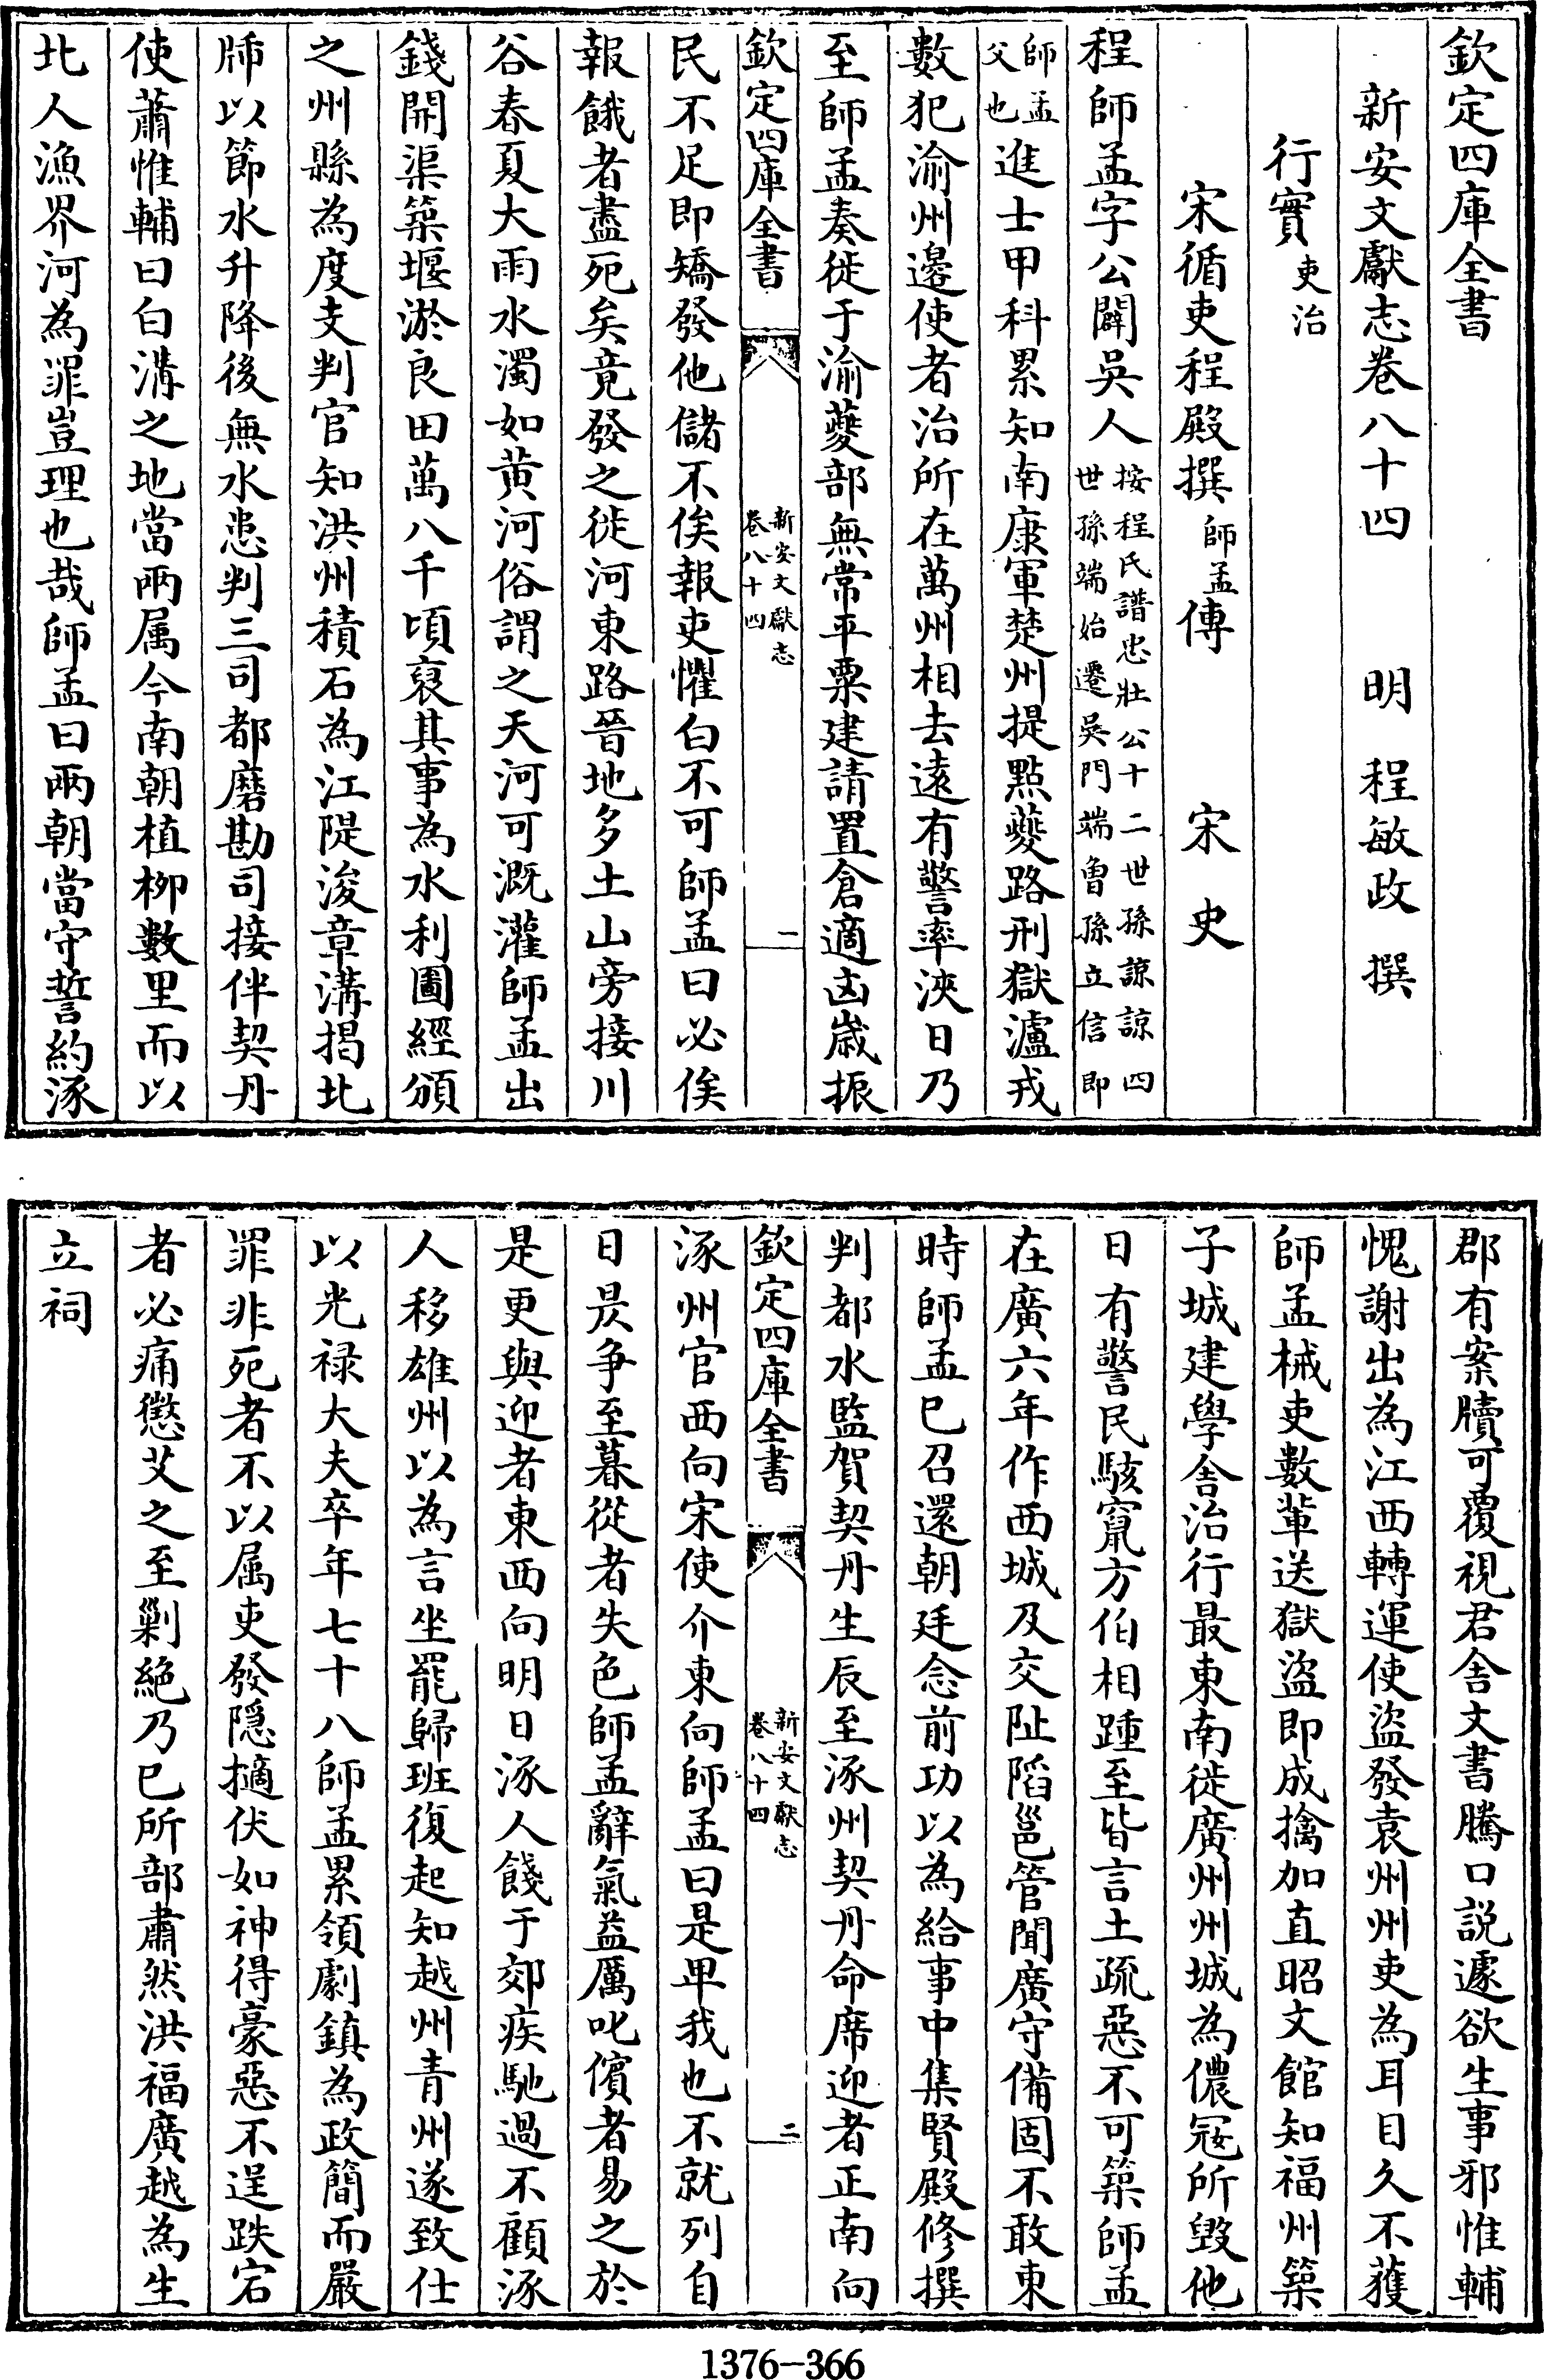 欽定四庫全書
新安文獻志卷八十四 明 程敏政 撰
行實吏治
宋循吏程殿撰師孟傳 宋史
程師孟字公闢吳人按程氏譜忠壯公十二世孫諒諒四世孫端始遷吳門端曾孫立信即
師孟父也進士甲科累知南康軍楚州提點夔路刑獄瀘戎
數犯渝州邊使者治所在萬州相去遠有警率浹日乃
至師孟奏徙于渝夔部無常平粟建請置倉適凶歲振
欽定四庫全書 新安文獻志卷八十四 一
民不足即矯發他儲不俟報吏懼白不可師孟曰必俟
報餓者盡死矣竟發之徙河東路晉地多土山旁接川
谷春夏大雨水濁如黄河俗謂之天河可溉灌師孟出
錢開渠築堰淤良田萬八千頃裒其事為水利圖經頒
之州縣為度支判官知洪州積石為江隄浚章溝揭北
牐以節水升降後無水患判三司都磨勘司接伴契丹
使蕭惟輔曰白溝之地當兩属今南朝植柳數里而以
北人漁界河為罪豈理也哉師孟曰兩朝當守誓約涿
郡有案牘可覆視君舍文書騰口説遽欲生事邪惟輔
愧謝出為江西轉運使盜發袁州州吏為耳目久不獲
師孟械吏數輩送獄盜即成擒加直昭文館知福州築
子城建學舍治行最東南徙廣州州城為儂寇所毀他
日有警民駭竄方伯相踵至皆言土疏惡不可築師孟
在廣六年作西城及交阯陷邕管聞廣守備固不敢東
時師孟已召還朝廷念前功以為給事中集賢殿修撰
判都水監賀契丹生辰至涿州契丹命席迎者正南向
欽定四庫全書 新安文獻志卷八十四 二
涿州官西向宋使介東向師孟曰是卑我也不就列自
日昃爭至暮從者失色師孟辭氣益厲叱儐者易之於
是更與迎者東西向明日涿人餞于郊疾馳過不顧涿
人移雄州以為言坐罷歸班復起知越州青州遂致仕
以光禄大夫卒年七十八師孟累領劇鎮為政簡而嚴
罪非死者不以屬吏發隱擿伏如神得豪惡不逞跌宕
者必痛懲艾之至剿絕乃已所部肅然洪福廣越為生
立祠
1376-366